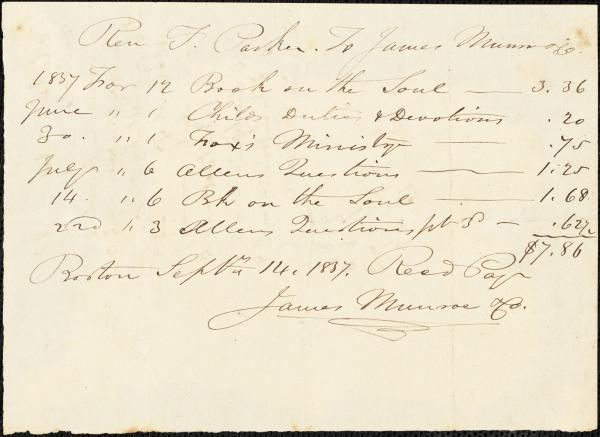 Rev T. Parker. To James Munroe &Co.
1837 For 12 Book on the Soul — 3.36
June " 1 Childs Duties & Devotions .20
30. " 1 Fox's Ministry — .75
July " 6 Allens Questions — 1.25
14. " 6 Bk on the Soul — 1.68
22d " 3 Allens Questions pt 3 — .62½
$7.86
Boston Septr 14. 1837. Recd Pay
James Munroe & Co.